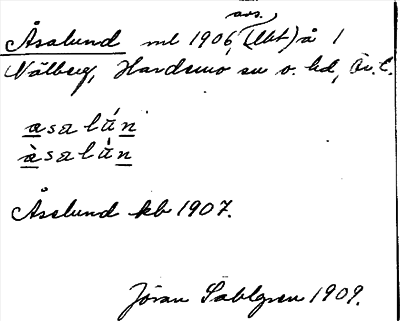 avs.
Åsalund ml 1906, (lbt) å 1
Nålberg, Hardemo sn o. hd, Ör. l.
asalán
àsalán
Åselund kb 1907.
Jöran Sahlgren 1909.